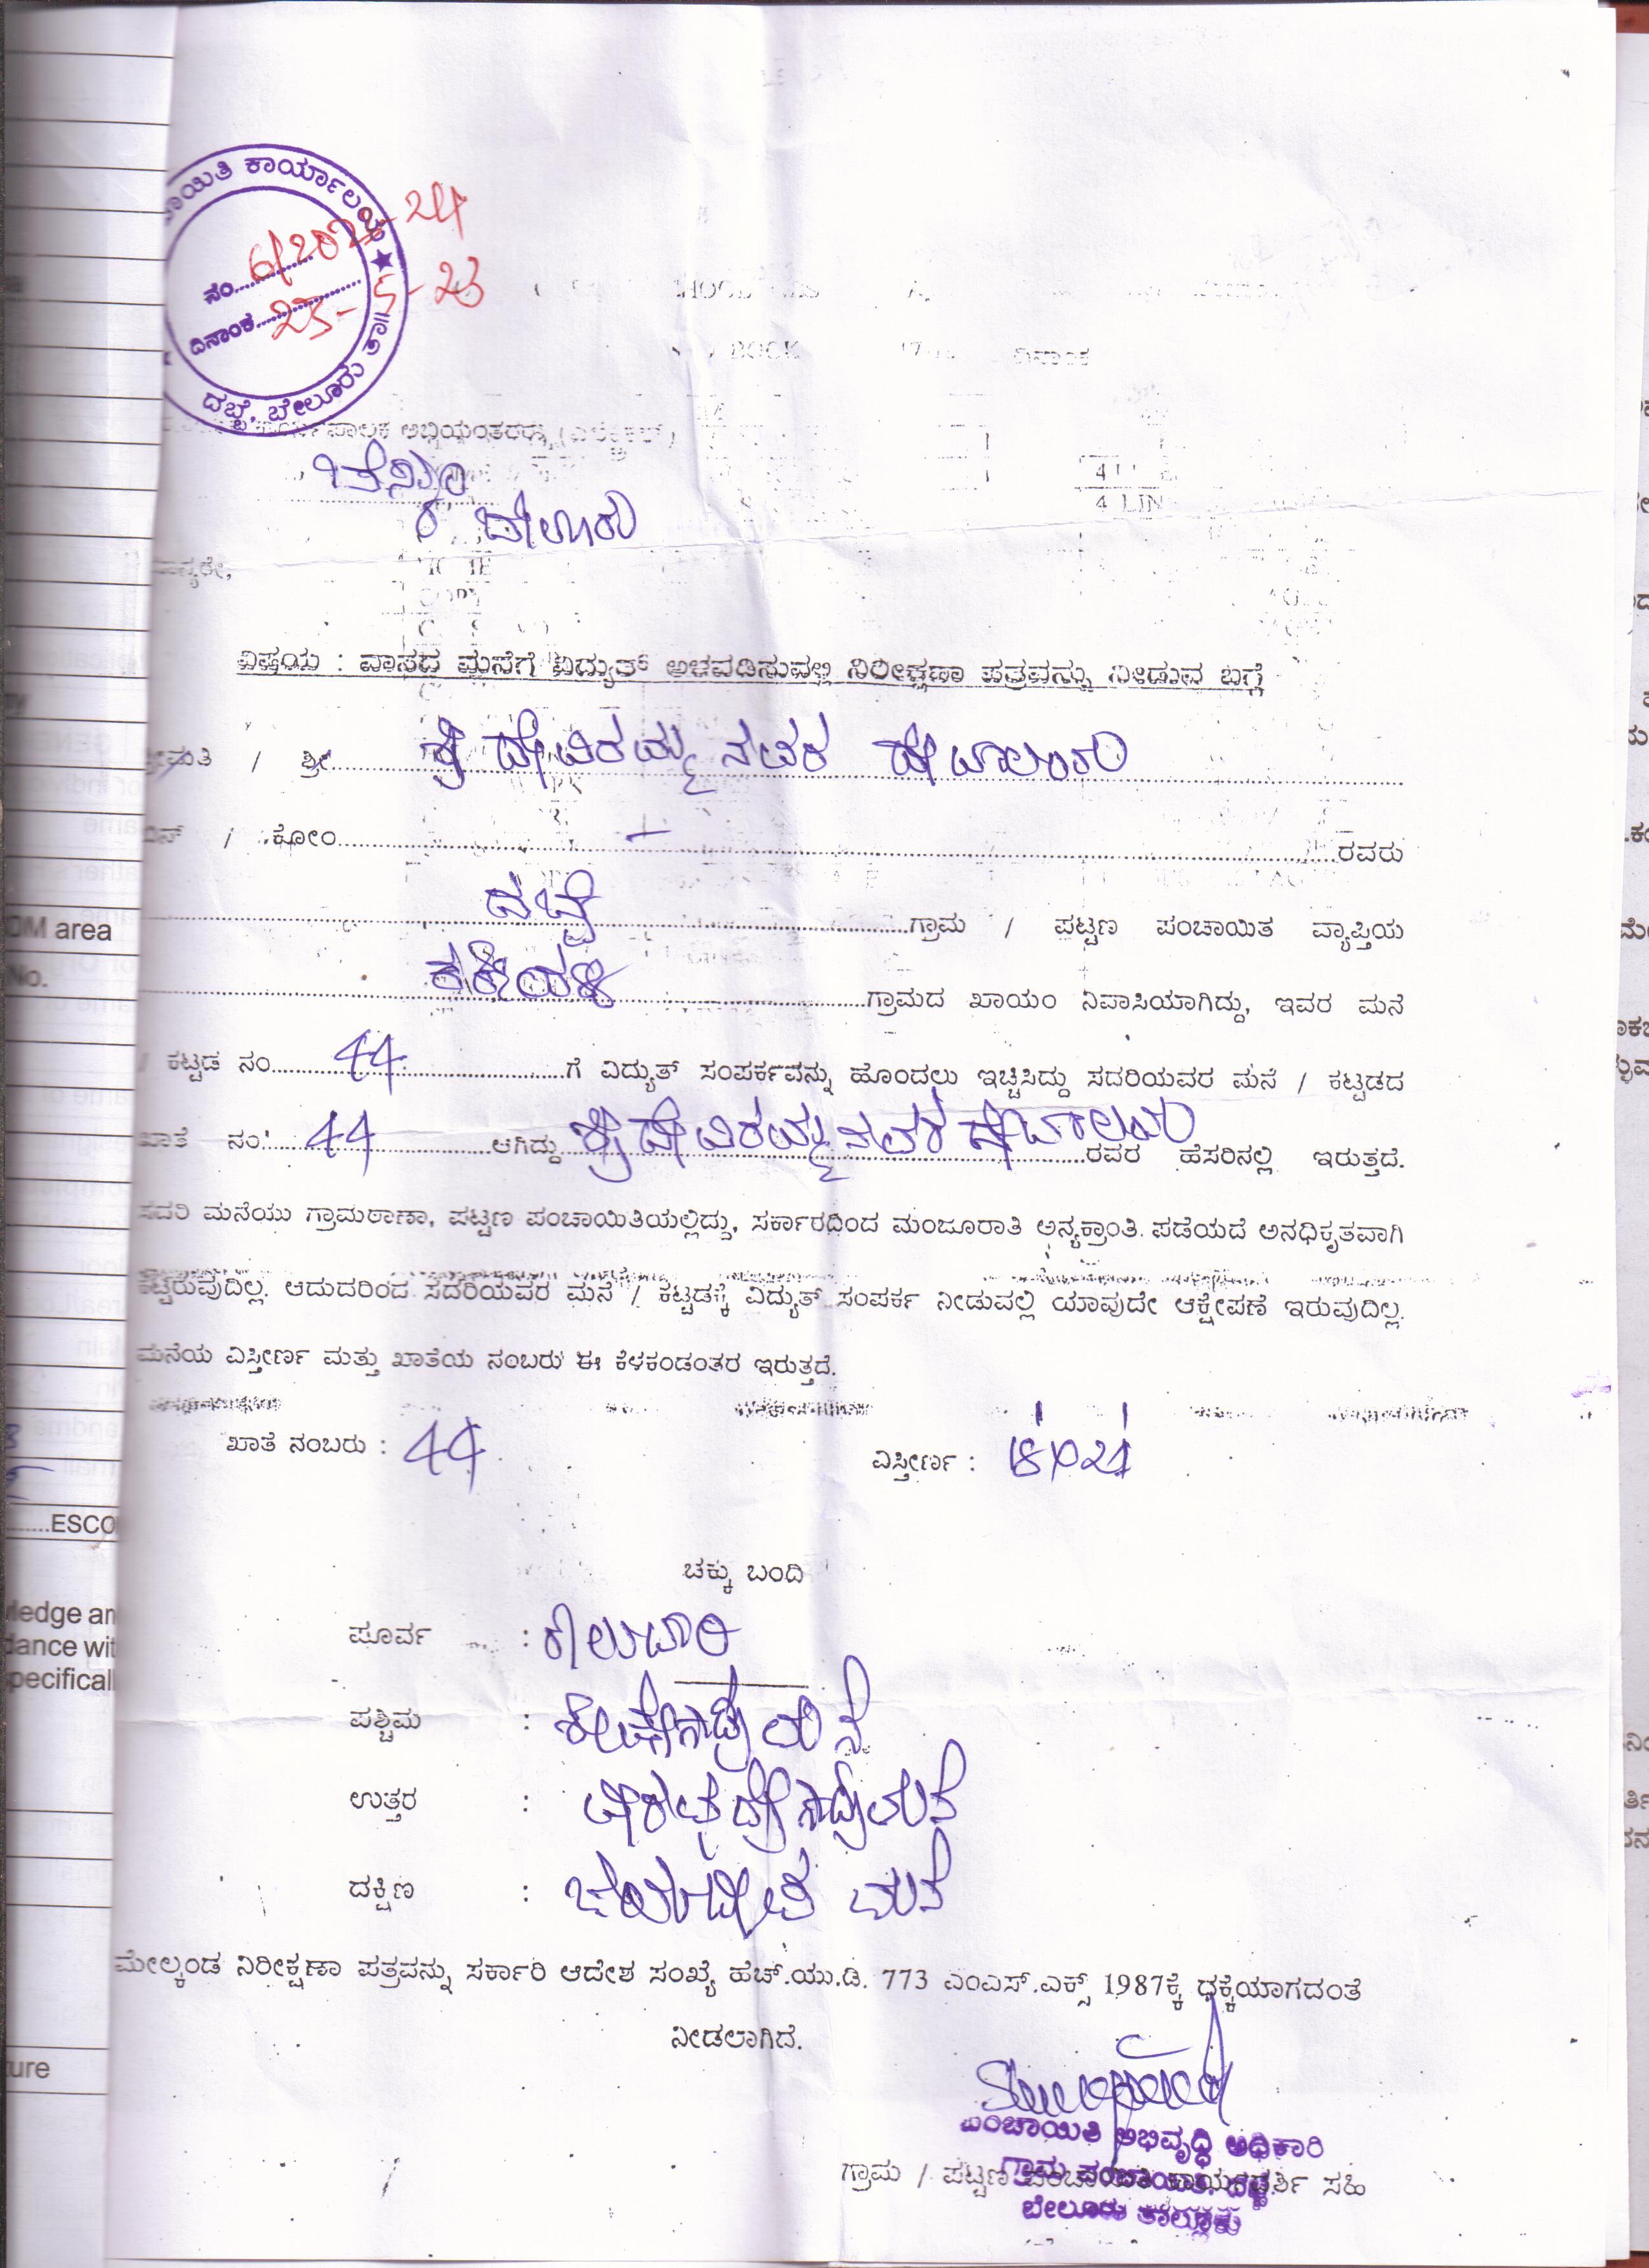 ಕಾರ್ಯಾಲಯ
ನಂ. 6/2023-24
ದಿನಾಂಕ 23-5-23
ದಬ್ಬೆ, ಬೇಲೂರು ತಾ||
DOCK ದಿನಾಂಕ
ಪಾಲಕ ಅಭಿಯಂತರರು
4 LIN
ಬೇಲೂರು
ಮಾನ್ಯರೇ,
ವಿಷಯ : ವಾಸದ ಮನೆಗೆ ವಿದ್ಯುತ್ ಅಳವಡಿಸುವಲ್ಲಿ ನಿರೀಕ್ಷಣಾ ಪತ್ರವನ್ನು ನೀಡುವ ಬಗ್ಗೆ
ಶ್ರೀಮತಿ / ಶ್ರೀ ಶ್ರೀ ದೇವಿರಮ್ಮ ನವರ ದೇವಾಲಯ
ಬಿನ್ / ಕೋಂ - ರವರು
ದಬ್ಬೆ ಗ್ರಾಮ / ಪಟ್ಟಣ ಪಂಚಾಯಿತ ವ್ಯಾಪ್ತಿಯ
ಗ್ರಾಮದ ಖಾಯಂ ನಿವಾಸಿಯಾಗಿದ್ದು, ಇವರ ಮನೆ
/ ಕಟ್ಟಡ ನಂ. 44 ಗೆ ವಿದ್ಯುತ್ ಸಂಪರ್ಕವನ್ನು ಹೊಂದಲು ಇಚ್ಚಿಸಿದ್ದು ಸದರಿಯವರ ಮನೆ / ಕಟ್ಟಡದ
ಖಾತೆ ನಂ. 44 ಆಗಿದ್ದು ಶ್ರೀ ದೇವಿರಮ್ಮ ನವರ ದೇವಾಲಯ ರವರ ಹೆಸರಿನಲ್ಲಿ ಇರುತ್ತದೆ.
ಸದರಿ ಮನೆಯು ಗ್ರಾಮಠಾಣಾ, ಪಟ್ಟಣ ಪಂಚಾಯಿತಿಯಲ್ಲಿದ್ದು, ಸರ್ಕಾರದಿಂದ ಮಂಜೂರಾತಿ ಅನ್ಯಕ್ರಾಂತಿ ಪಡೆಯದೆ ಅನಧಿಕೃತವಾಗಿ
ಕಟ್ಟಿರುವುದಿಲ್ಲ. ಆದುದರಿಂದ ಸದರಿಯವರ ಮನೆ / ಕಟ್ಟಡಕ್ಕೆ ವಿದ್ಯುತ್ ಸಂಪರ್ಕ ನೀಡುವಲ್ಲಿ ಯಾವುದೇ ಆಕ್ಷೇಪಣೆ ಇರುವುದಿಲ್ಲ.
ಮನೆಯ ವಿಸ್ತೀರ್ಣ ಮತ್ತು ಖಾತೆಯ ನಂಬರು ಈ ಕೆಳಕಂಡಂತರ ಇರುತ್ತದೆ.
ಖಾತೆ ನಂಬರು : 44 ವಿಸ್ತೀರ್ಣ :
ಚಕ್ಕು ಬಂದಿ
ಪೂರ್ವ :
ಪಶ್ಚಿಮ : ಮನೆ
ಉತ್ತರ : ಮನೆ
ದಕ್ಷಿಣ : ಮನೆ
ಮೇಲ್ಕಂಡ ನಿರೀಕ್ಷಣಾ ಪತ್ರವನ್ನು ಸರ್ಕಾರಿ ಆದೇಶ ಸಂಖ್ಯೆ ಹೆಚ್.ಯು.ಡಿ. 773 ಎಂಎಸ್.ಎಕ್ಸ್ 1987ಕ್ಕೆ ಧಕ್ಕೆಯಾಗದಂತೆ
ನೀಡಲಾಗಿದೆ.
ಪಂಚಾಯಿತಿ ಅಭಿವೃದ್ಧಿ ಅಧಿಕಾರಿ
ಗ್ರಾಮ ಪಂಚಾಯಿತಿ ದಬ್ಬೆ
ಗ್ರಾಮ / ಪಟ್ಟಣ ಪಂಚಾಯಿತಿ ಕಾರ್ಯದರ್ಶಿ ಸಹಿ
ಬೇಲೂರು ತಾಲ್ಲೂಕು
OM area
No.
ESCO